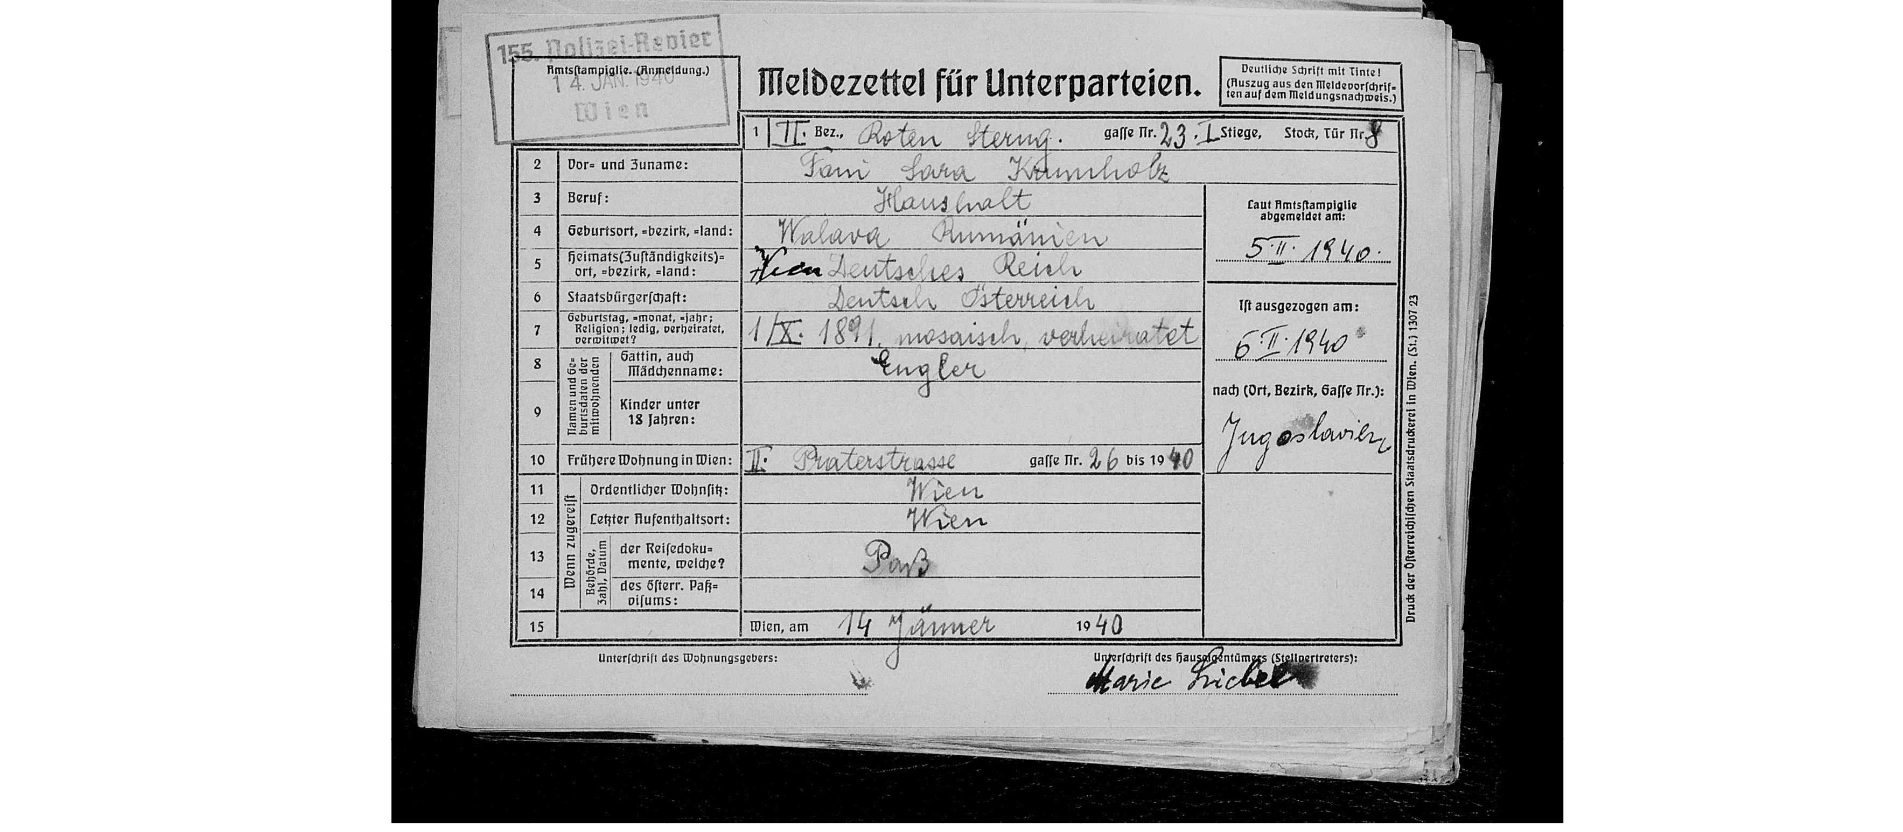 155. Polizei-Revier
Amtsstampiglie. (Anmeldung.)
14. JAN. 1940
Wien
Meldezettel für Unterparteien.
Deutliche Schrift mit Tinte!
(Auszug aus den Meldevorschrif=
ten auf dem Meldungsnachweis.)
1 II. Bez., Roten Sterng. gasse Nr. 23. I Stiege, Stock, Tür Nr. 8
2 Vor= und Zuname: Fani Sara Krumholz
3 Beruf: Haushalt
4 Geburtsort, =bezirk, =land: Walava Rumänien
5 Heimats(Zuständigkeits)=
ort, =bezirk, =land: Wien Deutsches Reich
6 Staatsbürgerschaft: Deutsch Österreich
7 Geburtstag, =monat, =jahr;
Religion; ledig, verheiratet,
verwitwet? 1/X. 1891. mosaisch, verheiratet
Namen und Ge=
burtsdaten der
mitwohnenden
8 Gattin, auch
Mädchenname: Engler
9 Kinder unter
18 Jahren:
10 Frühere Wohnung in Wien: II. Praterstrasse gasse Nr. 26 bis 1940
Wenn zugereist
11 Ordentlicher Wohnsitz: Wien
12 Letzter Aufenthaltsort: Wien
Behörde,
Zahl, Datum
13 der Reisedoku=
mente, welche? Paß
14 des österr. Paß=
visums:
15 Wien, am 14 Jänner 1940
Laut Amtsstampiglie
abgemeldet am:
5.II.1940.
Ist ausgezogen am:
6.II.1940
nach (Ort, Bezirk, Gasse Nr.):
Jugoslavien
Druck der Österreichischen Staatsdruckerei in Wien. (St.) 1307 23
Unterschrift des Wohnungsgebers:
Unterschrift des Hauseigentümers (Stellvertreters):
Marie